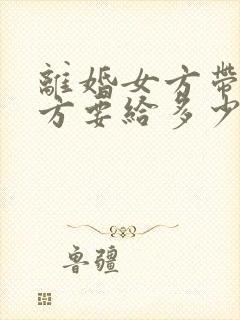 離婚女方帶
方要給多少
魯疆